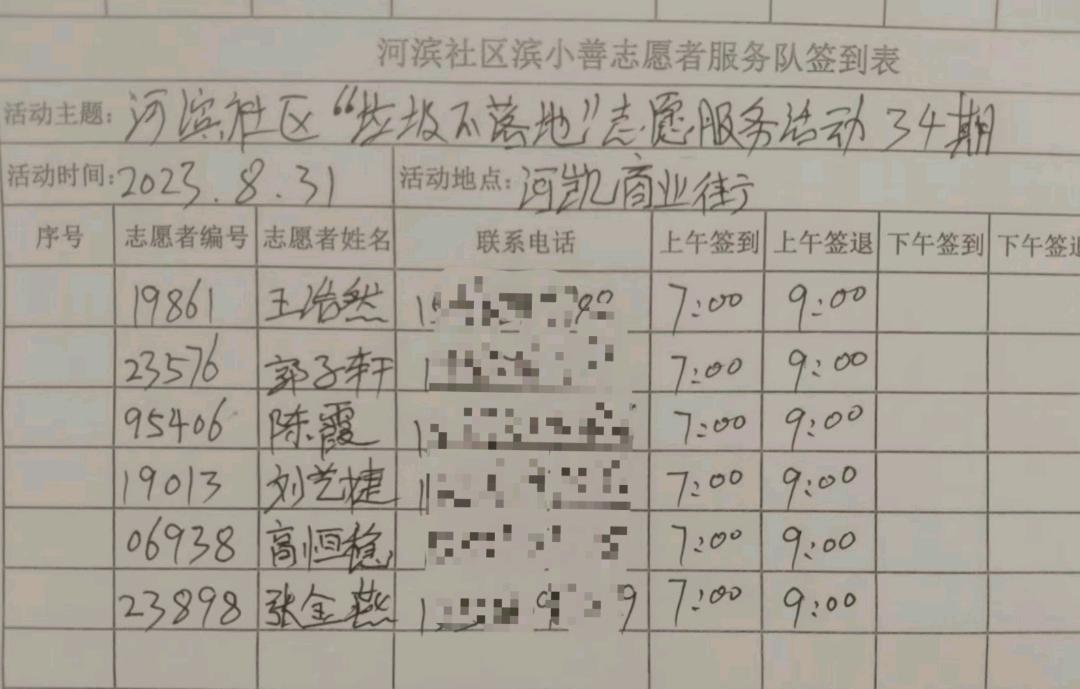 河滨社区滨小善志愿者服务队签到表
活动主题：河滨社区“垃圾不落地”志愿服务活动34期
活动时间：2023.8.31 活动地点：河凯商业街
序号 志愿者编号 志愿者姓名 联系电话 上午签到 上午签退 下午签到 下午签退
19861 王浩然 7:00 9:00
23576 郭子轩 7:00 9:00
95406 陈霞 7:00 9:00
19013 刘艺捷 7:00 9:00
06938 高恒稳 7:00 9:00
23898 张金燕 7:00 9:00